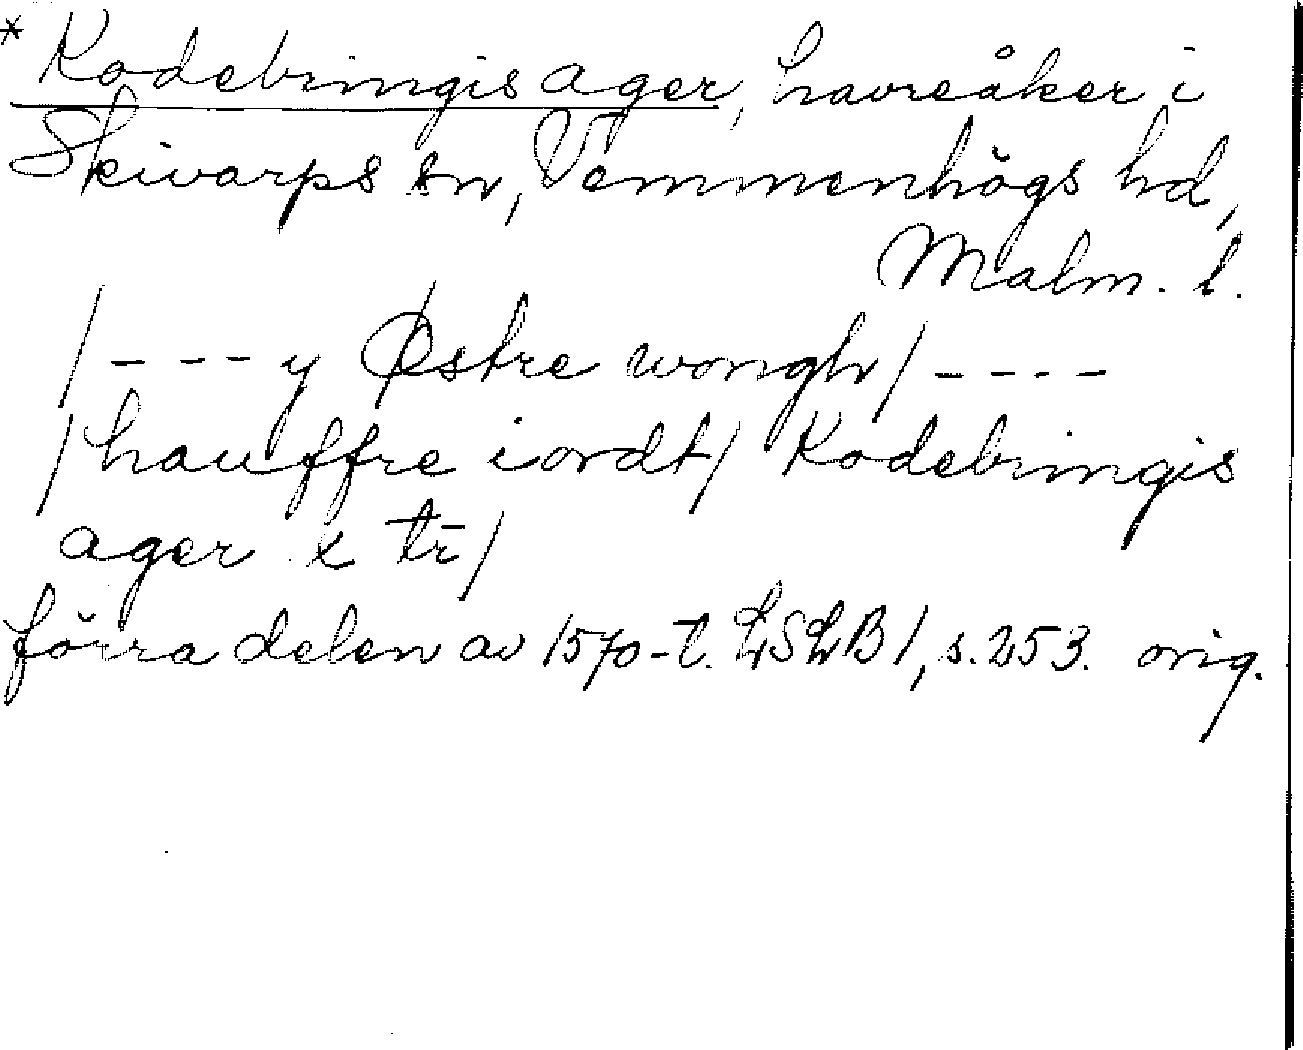 * Kodebringis ager, havreåker i
Skivarps sn, Vemmenhögs hd,
Malm. l.
/ - - - y Østre wongh / - - - -
/ hauffre iordt / Kodebringis
ager x tr̄ /
förra delen av 1570-t. LSLB 1, s. 253. orig.